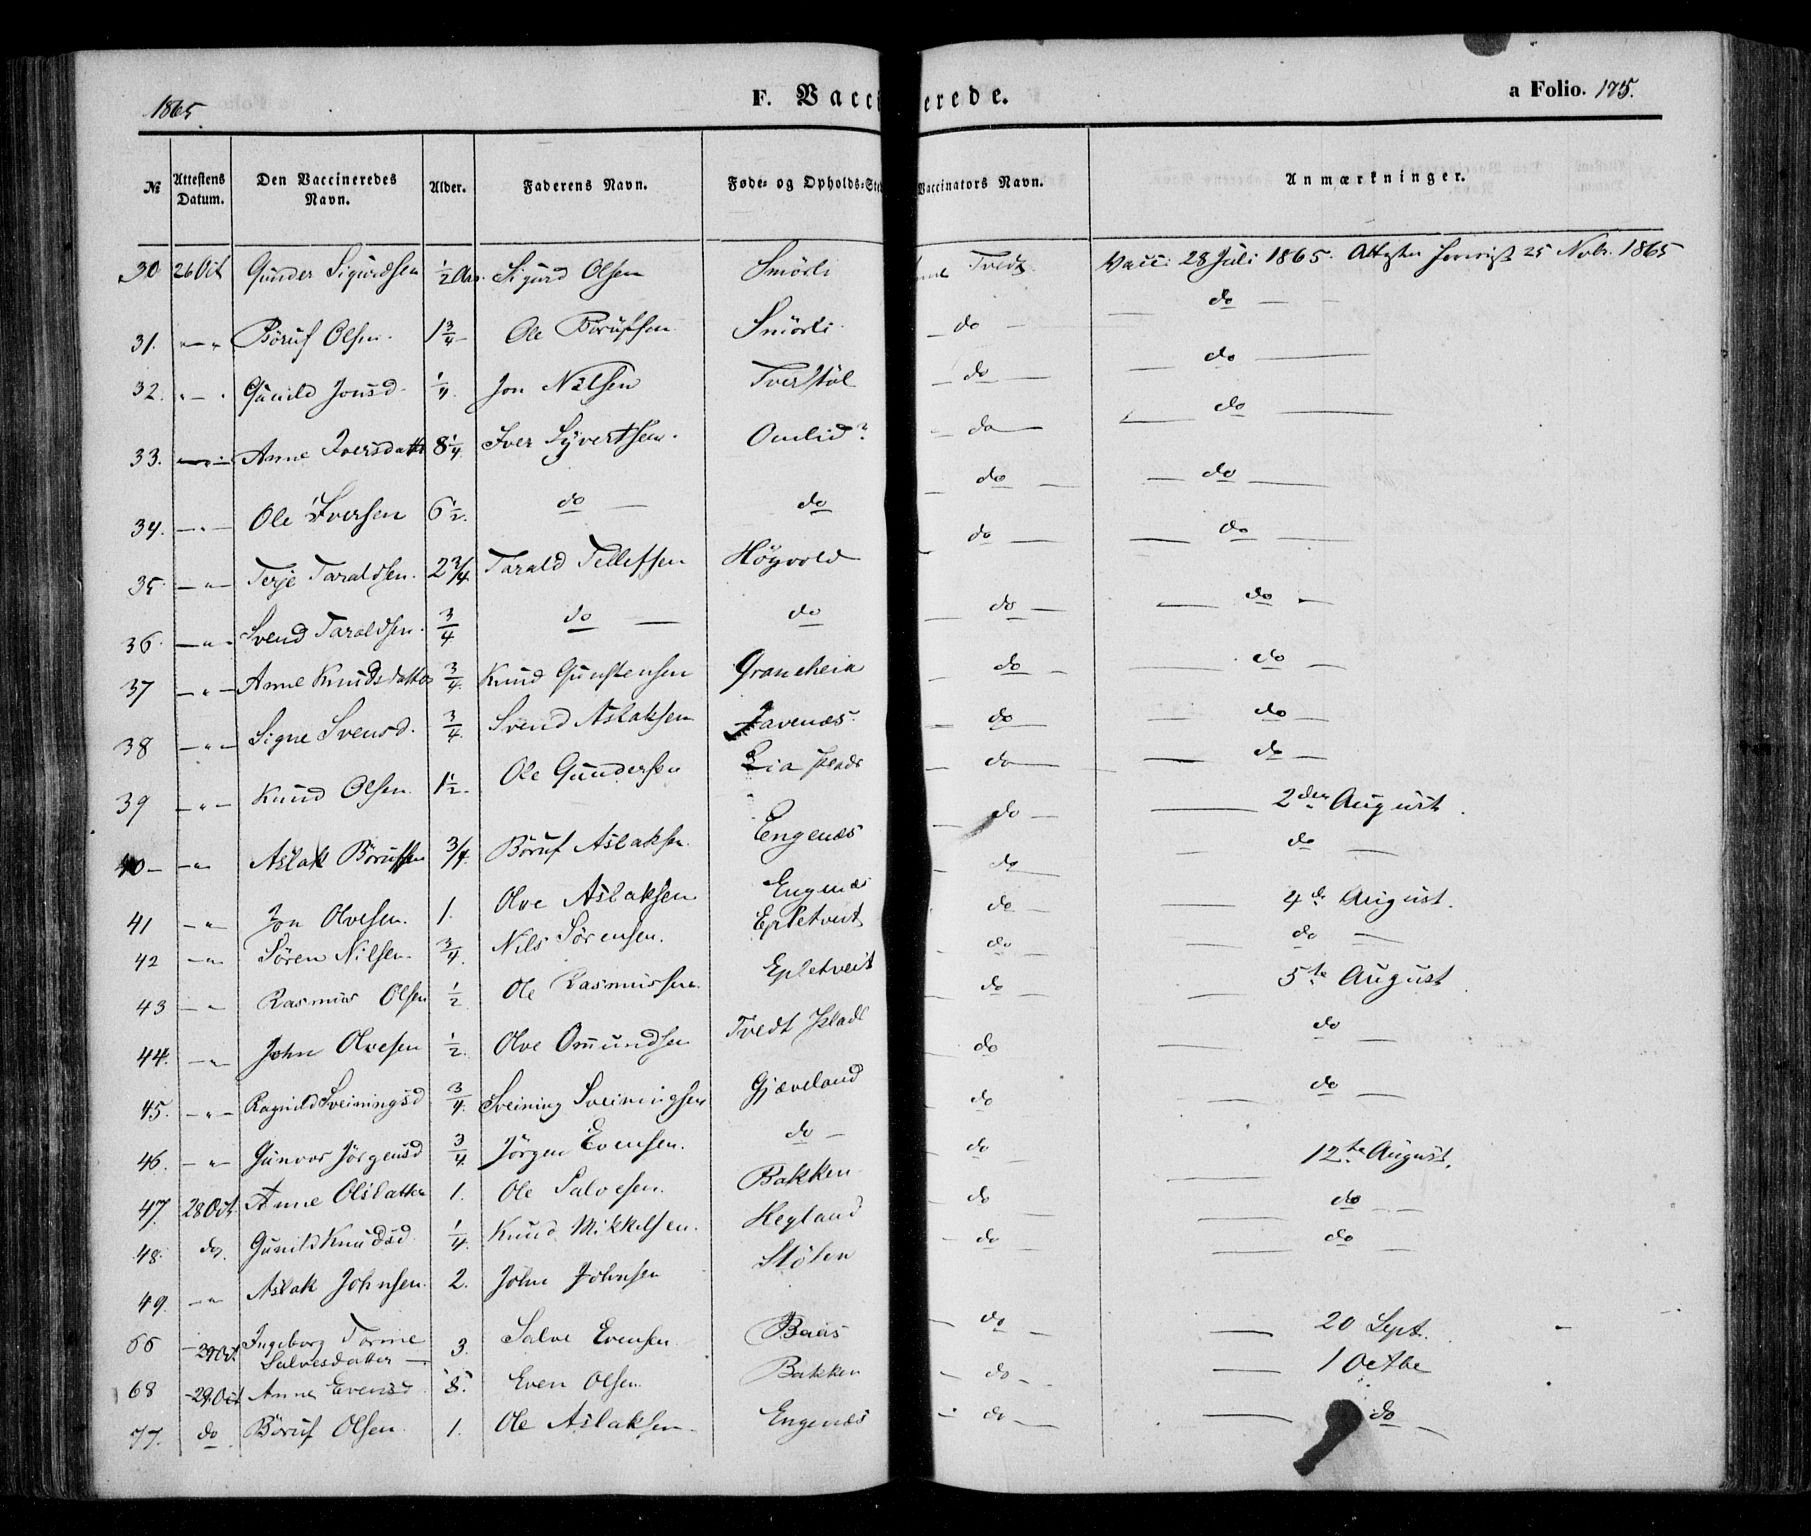 1865.
F. Vacci erede.
a Folio. 175.
№ Attestens Datum. Den Vaccineredes Navn. Alder. Faderens Navn. Føde- og Opholds-Ste Vaccinators Navn. Anmærkninger.
30 26 Oct Gunder Sigurdsen ½ Aar Sigurd Olsen Smörli Tvedt Vacc: 28 Juli 1865. 25 Nobr. 1865
31. — " Böruf Olsen. 1 ¾ Ole Börufsen Smörli. — do — — do —
32. " — " Gunild Jonsd. ¼ Jon Nilsen Tverstöl — do — — do —
33. — " — Anne Iversdatt 8 ¼ Iver Syvertsen. Omlid? — do — — do —
34. — " — Ole Iversen 6 ½. do — do — do — — do —
35 — " — Terje Taraldsen. 2 ¾ Tarald Tellefsen Höyvold — do — — do —
36. — " — Svend Taraldsen. ¾ do — do — do — — do —
37 — " — Anne Knudsdatter ¾ Knud Gunstensen Graneheia — do — — do —
38 — " — Signe Svensd. ¾ Svend Aslaksen Javenæs. — do — — do —
39 — " — Knud Olsen. 1 ½. Ole Gundersen Lia — do — — do —
40 — — " — Aslak Börufsen ¾ Böruf Aslaksen. Engenæs — do — — 2den August.
41 — " — Jon Olvesen. 1. Olve Aslaksen Engenæs — do — — do —
42 — " — Sören Nilsen. ¾. Nils Sörensen. Epletveit — do — — 4de August.
43 — " Rasmus Olsen ½ Ole Rasmussen. Epletveit — do — — do —
44. — " — John Olvesen ½. Olve Omundsen Tvedt — do — — 5te August
45. — " — Ragnild Sveiningsd ¾. Sveining Sveiningsen Gjæveland — do — — do —
46. — " Gunvor Jörgensd ¾ Jörgen Evensen. do — — do — — do —
47. 28 Oct Anne Olsdatter 1. Ole Salvesen. Bakken — do — — 12te August.
48. do. Gunild Knudsd ¼ Knud Mikkelsen. Hegland — do — — do —
49. — " Aslak Johnsen. 2. John Johnsen Stölen — do — — do —
66 — 29 Oct. Ingeborg Tomine Salvesdatter — 3. Salve Evensen Baas — do — — 20 Sept. —
68 — 29. Oct Anne Evensd. 8. Even Olsen. Bakken — do — — 1 Octbe
77. do Böruf Olsen. 1. Ole Aslaksen — Engenæs — do — — do —